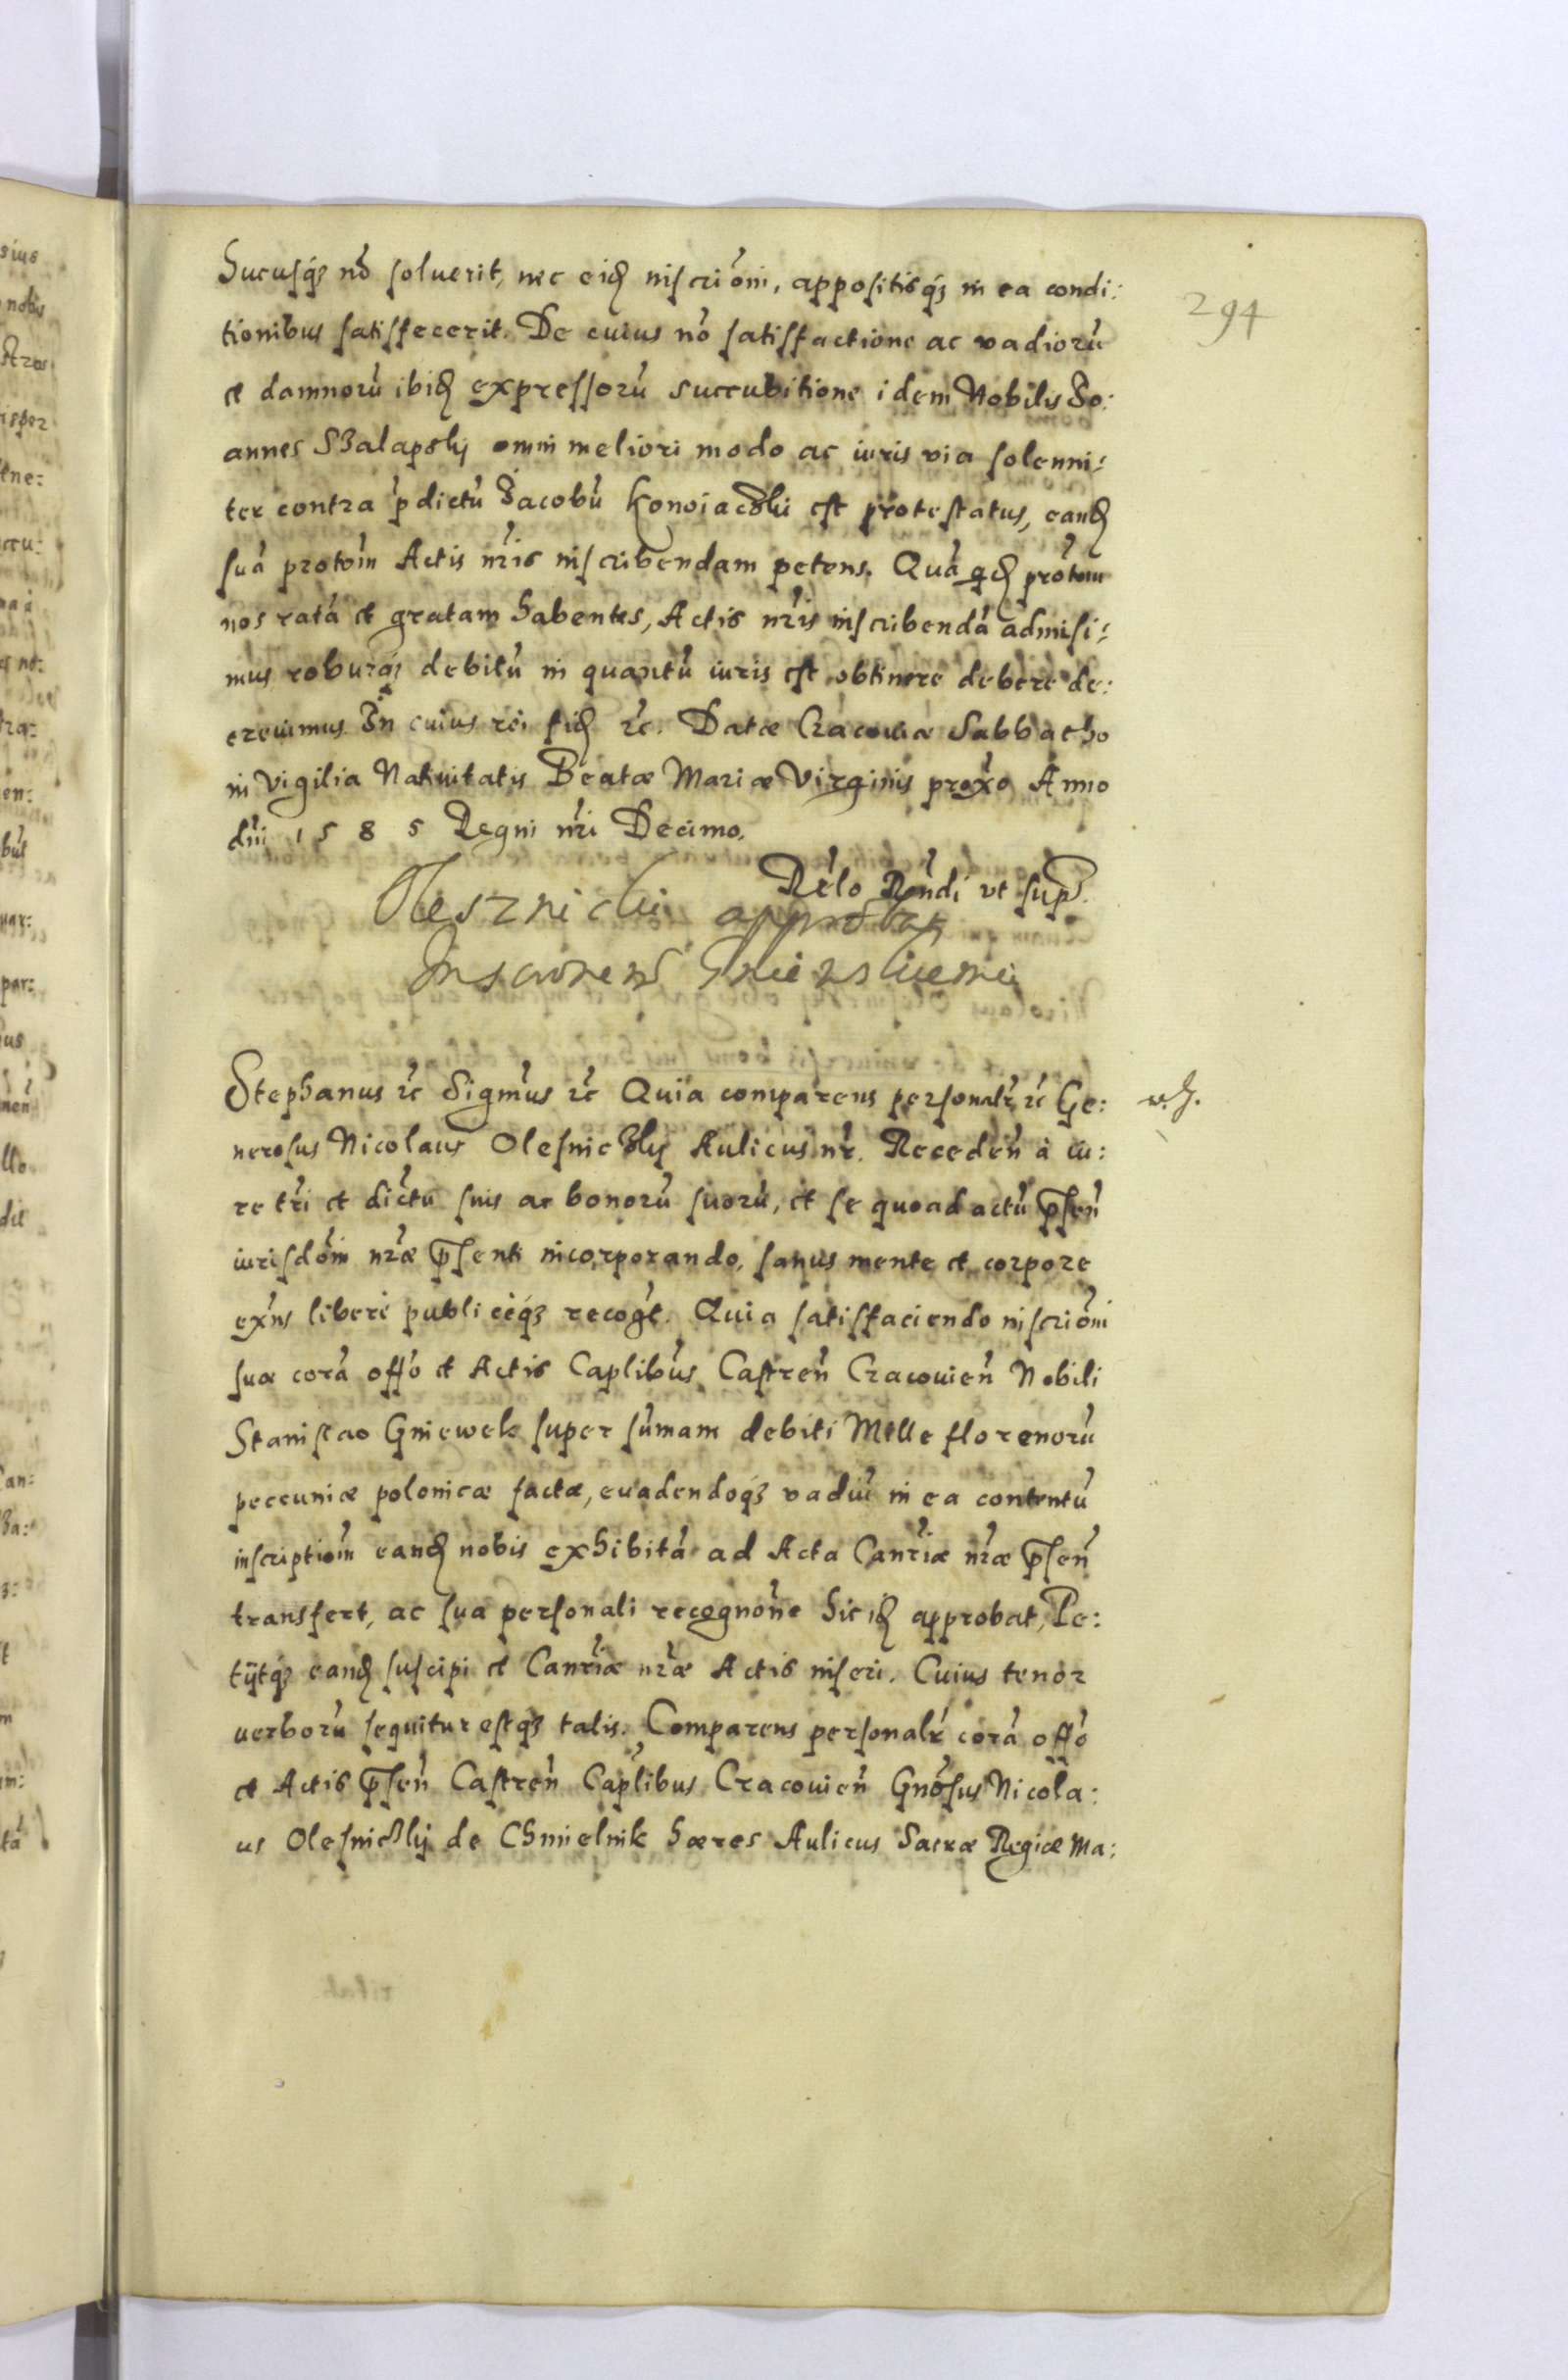 294
hucusq́ꝫ nō soluerit, nec eidꝫ inscriōni, appositisq́ꝫ in ea condi:
tionibus satisfecerit. De cuius nō satisfactione ac vadiorū
et damnorū ibidꝫ expressorū succubitione idem Nobilis Jo:
annes Szalapskij omni meliori modo ac iuris via solenni:
ter contra p̄dictū Jacobū Konoiaczki est protestatus, eandꝫ
suā protōm Actis nr̄is inscribendam petens. Quā qd̄ꝫ protōm
nos ratā et gratam habentes, Actis nr̄is inscribendā admisi:
mus roburq́ꝫ debitū in quantū iuris est obtinere debere de:
creuimus. In cuius rei fidꝫ ꝛc̄. Datæ Cracouiæ Sabbatho
in Vigilia Natiuitatis Beatæ Mariæ Virginis proxō Anno
dn̄i 1585 Regni nr̄i Decimo.
Rēlo Rn̄di vt sup̄
Olesznicki approbat
Inscrōnem Gniewkowi
Stephanus ꝛc̄ Sigm̄us ꝛc̄ Quia comparens personalr̄ ꝛc̄ Ge:
nerosus Nicolaus Olesniczkij Aulicus nr̄. Receden̄ à iu:
re tr̄i et dictū suis ac bonorū suorū, et se quoad actū p̄sen̄
iurisdōni nr̄æ p̄senti incorporando, sanus mente et corpore
exn̄s liberè publiceq́ꝫ recogt̄. Quia satisfaciendo inscriōni
suæ corā offō et Actis Caplibus Castren̄ Cracouien̄ Nobili
Stanislao Gniewek super sūmam debiti Mille florenorū
peccuniæ polonicæ factæ, euadendoq́ꝫ vadiū in ea contentū
inscriptiōm eandꝫ nobis exhibitā ad Acta Canr̄iæ nr̄æ p̄sen̄
transfert, ac sua personali recognōne hic idꝫ approbat, Pe:
tijtq́ꝫ eandꝫ suscipi et Canr̄iæ nr̄æ Actis inseri. Cuius tenor
uerborū sequitur estq́ꝫ talis. Comparens personalr̄ corā offō
et Actis p̄sen̄ Castren̄ Caplibus Cracouien̄ Gnōsus Nicola:
us Olesniczkij de Chmielnik hæres Aulicus Sacræ Regiæ Ma: